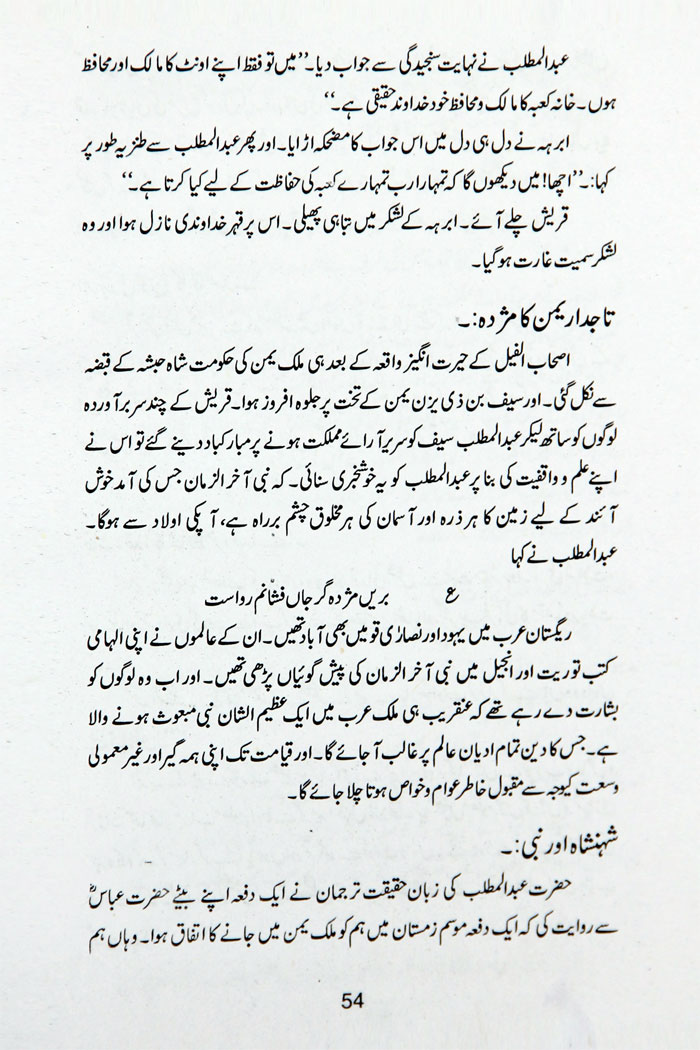 عبدالمطلب نے نہایت سنجیدگی سے جواب دیا۔’’میں تو فقط اپنے اونٹ کا مالک اور محافظ
ہوں۔ خانہ کعبہ کا مالک و محافظ خود خداوند حقیقی ہے۔‘‘
ابرہہ نے دل ہی دل میں اس جواب کا مضحکہ اڑایا۔ اور پھر عبدالمطلب سے طنزیہ طور پر
کہا:۔’’اچھا! میں دیکھوں گا کہ تمہارا رب تمہارے کعبہ کی حفاظت کے لیے کیا کرتا ہے۔‘‘
قریش چلے آئے۔ ابرہہ کے لشکر میں تباہی پھیلی۔ اس پر قہر خداوندی نازل ہوا اور وہ
لشکر سمیت غارت ہو گیا۔
تاجدار یمن کا مژدہ:۔
اصحاب الفیل کے حیرت انگیز واقعہ کے بعد ہی ملک یمن کی حکومت شاہ حبشہ کے قبضہ
سے نکل گئی۔ اور سیف بن ذی یزن یمن کے تخت پر جلوہ افروز ہوا۔ قریش کے چند سربرآوردہ
لوگوں کو ساتھ لیکر عبدالمطلب سیف کو سریر آرائے مملکت ہونے پر مبارکباد دینے گئے تو اس نے
اپنے علم و واقفیت کی بنا پر عبدالمطلب کو یہ خوشخبری سنائی۔ کہ نبی آخر الزمان جس کی آمد خوش
آئند کے لیے زمین کا ہر ذرہ اور آسمان کی ہر مخلوق چشم براہ ہے، آپکی اولاد سے ہوگا۔
عبدالمطلب نے کہا
ع بریں مژدہ گر جاں فشانم رواست
ریگستان عرب میں یہود اور نصاریٰ قومیں بھی آباد تھیں۔ ان کے عالموں نے اپنی الہامی
کتب توریت اور انجیل میں نبی آخر الزمان کی پیش گوئیاں پڑھی تھیں۔ اور اب وہ لوگوں کو
بشارت دے رہے تھے کہ عنقریب ہی ملک عرب میں ایک عظیم الشان نبی مبعوث ہونے والا
ہے۔ جس کا دین تمام ادیان عالم پر غالب آ جائے گا۔ اور قیامت تک اپنی ہمہ گیر اور غیر معمولی
وسعت کیوجہ سے مقبول خاطر عوام و خواص ہوتا چلا جائے گا۔
شہنشاہ اور نبی:۔
حضرت عبدالمطلب کی زبان حقیقت ترجمان نے ایک دفعہ اپنے بیٹے حضرت عباسؓ
سے روایت کی کہ ایک دفعہ موسم زمستان میں ہم کو ملک یمن میں جانے کا اتفاق ہوا۔ وہاں ہم
54